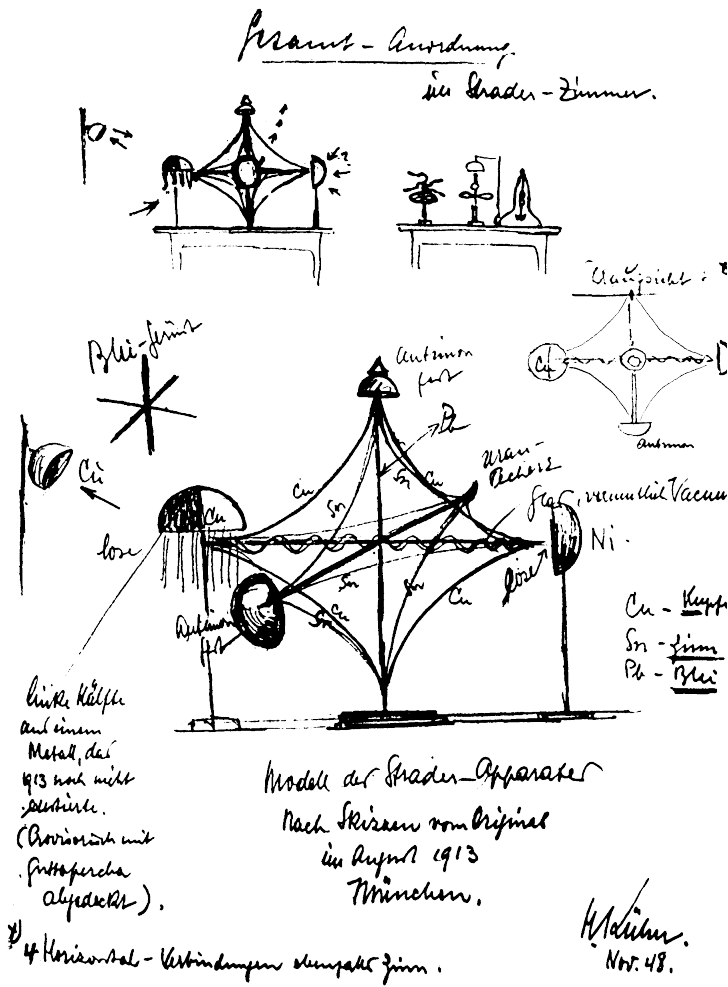 Gesamt-Anordnung
im Strader-Zimmer.
Draufsicht:
Cu
Antimon
Blei-gerüst
Antimon
fest
Pb
Cu
Cu
Cu
Sn
Sn
Cu
Uran-
Pecherz
Glas, vermutlich Vacuum
lose
lose
Ni.
Sn
Sn
Cu
Sn
Cu
Antimon
fest
Cu - Kupfe
Sn - Zinn
Pb - Blei
linke Hälfte
aus einem
Metall, das
1913 noch nicht
existierte.
(Provisorisch mit
Guttapercha
abgedeckt).
Modell des Strader-Apparates
Nach Skizzen vom Original
im August 1913
München.
4 Horizontal-Verbindungen ebenfalls Zinn.
Nov. 48.